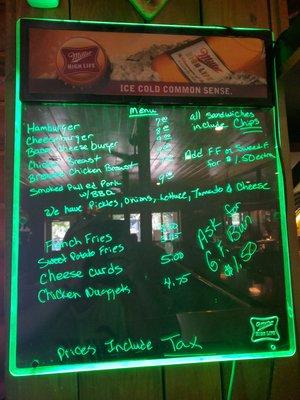 Miller
HIGH LIFE
Miller
HIGH LIFE
ICE COLD COMMON SENSE.
Menu
Hamburger
Cheeseburger
Bacon Cheeseburger
Chicken Breast
Smoked Pulled Pork
w/ BBQ
all sandwiches
include Chips
Add FF or Sweet F
for $1.50 extra
We have Pickles, Onions, Lettuce, Tomato & Cheese
French Fries
Sweet Potato Fries
Cheese Curds 5.00
Chicken Nuggets 4.75
Ask
G.F. Bun
$1.50
Prices Include Tax
Miller
HIGH LIFE